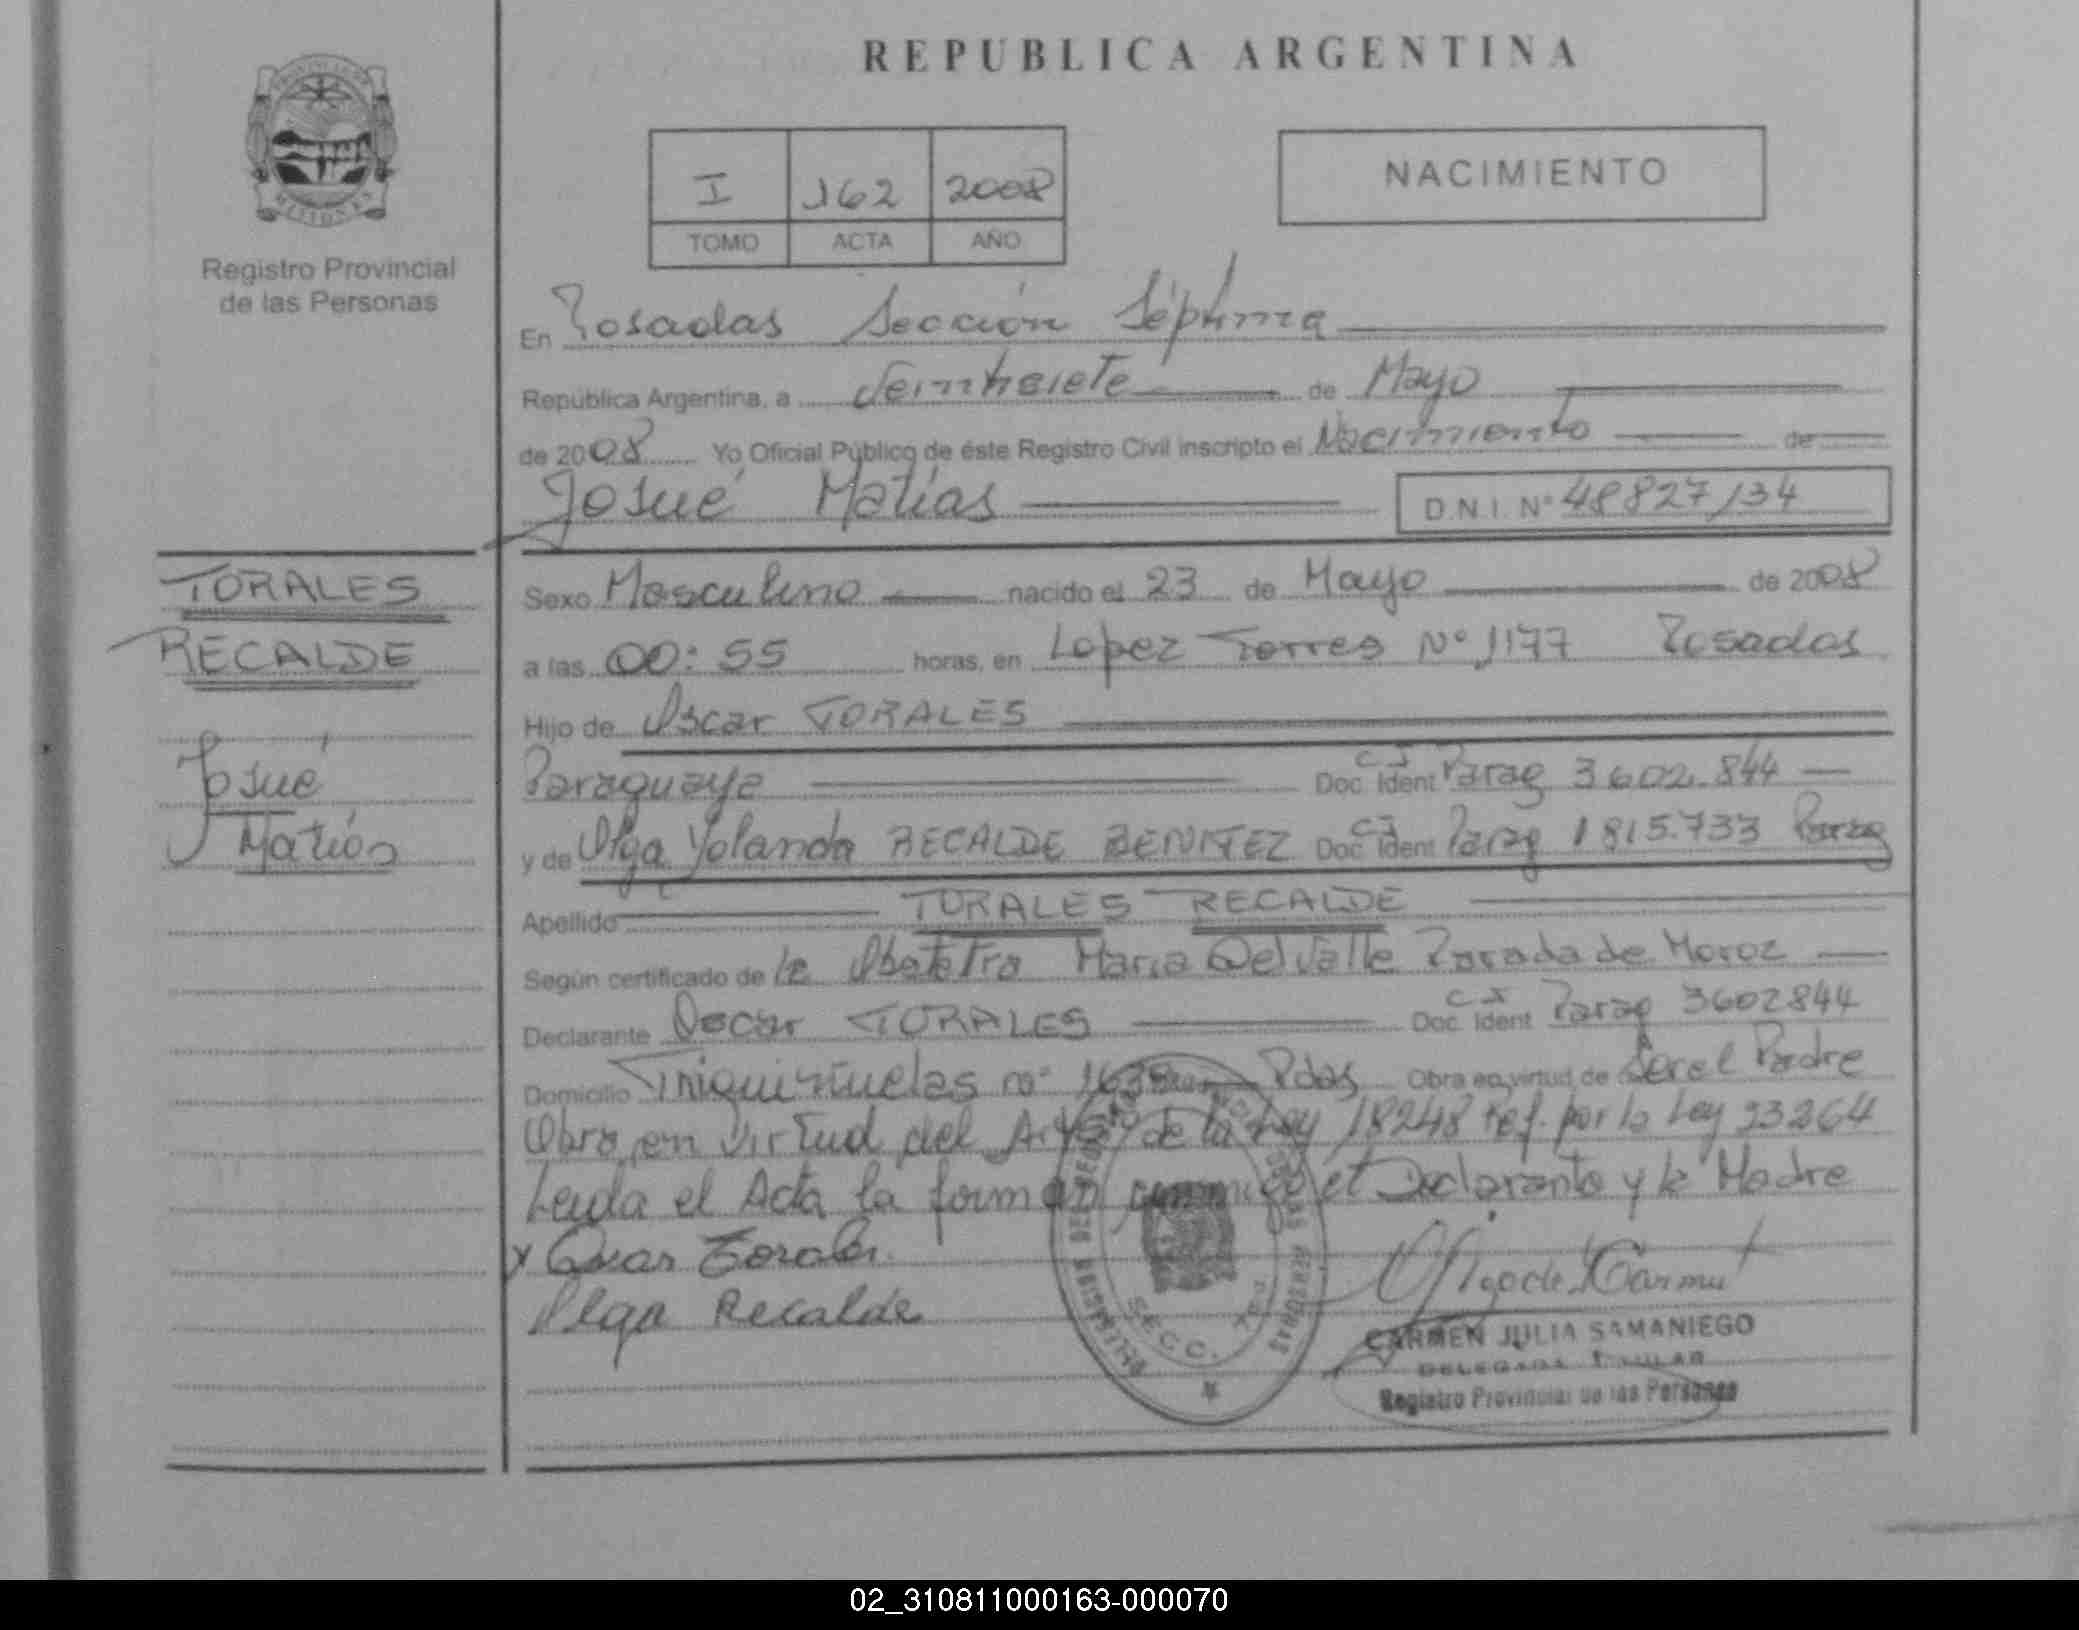 REPUBLICA ARGENTINA
PROVINCIA DE
MISIONES
Registro Provincial
de las Personas
I 162 2008
TOMO ACTA AÑO
NACIMIENTO
En Posadas Sección Séptima
República Argentina, a Veintisiete de Mayo
de 2008 Yo Oficial Público de éste Registro Civil inscripto el Nacimiento de
Josué Matías D.N.I. Nº 48827134
TORALES
RECALDE
Josué
Matías
Sexo Masculino nacido el 23 de Mayo de 2008
a las 00:55 horas, en Lopez Torres Nº 1177 Posadas
Hijo de Oscar TORALES
Paraguaya Doc. Ident C I Parag 3602.844
y de Olga Yolanda RECALDE BENITEZ Doc. Ident C I Parag 1815.733 Parag
Apellido TORALES RECALDE
Según certificado de la Obstetra Maria Del Valle Parada de Moroz
Declarante Oscar TORALES Doc. Ident C I Parag 3602844
Domicilio nº Pdas Obra en virtud de Ser el Padre
Obra en virtud del de la Ley 18248 ref. por la Ley 23264
Leida el Acta la forman el Declarante y la Madre
x Oscar Torales
Olga Recalde
SECC.
CARMEN JULIA SAMANIEGO
DELEGADA TITULAR
Registro Provincial de las Personas
02_310811000163-000070